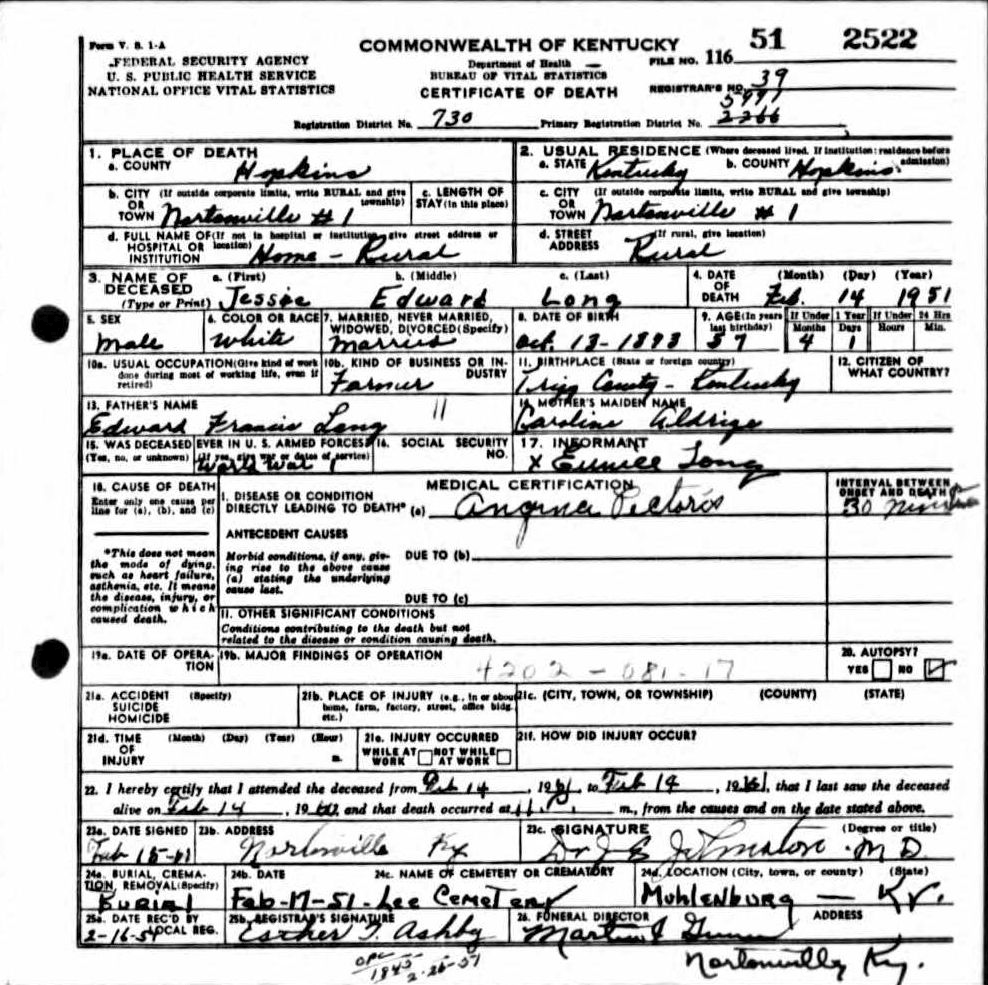 Form V. S. 1-A
COMMONWEALTH OF KENTUCKY
FILE NO. 116 51 2522
FEDERAL SECURITY AGENCY
Department of Health
U. S. PUBLIC HEALTH SERVICE
BUREAU OF VITAL STATISTICS
REGISTRAR'S NO. 39
NATIONAL OFFICE VITAL STATISTICS
CERTIFICATE OF DEATH
5991
Registration District No. 730 Primary Registration District No. 2266
1. PLACE OF DEATH
a. COUNTY Hopkins
2. USUAL RESIDENCE (Where deceased lived. If institution: residence before admission)
a. STATE Kentucky b. COUNTY Hopkins
b. CITY (If outside corporate limits, write RURAL and give township)
OR
TOWN Nortonville #1
c. LENGTH OF STAY (in this place)
c. CITY (If outside corporate limits, write RURAL and give township)
OR
TOWN Nortonville #1
d. FULL NAME OF (If not in hospital or institution, give street address or location)
HOSPITAL OR
INSTITUTION Home - Rural
d. STREET ADDRESS (If rural, give location)
Rural
3. NAME OF DECEASED (Type or Print)
a. (First) b. (Middle) c. (Last)
Jessie Edward Long
4. DATE OF DEATH (Month) (Day) (Year)
Feb. 14 1951
5. SEX
Male
6. COLOR OR RACE
White
7. MARRIED, NEVER MARRIED, WIDOWED, DIVORCED (Specify)
Married
8. DATE OF BIRTH
Oct. 13-1893
9. AGE (In years last birthday)
57
If Under 1 Year
Months Days
4 1
If Under 24 Hrs
Hours Min.
10a. USUAL OCCUPATION (Give kind of work done during most of working life, even if retired)
10b. KIND OF BUSINESS OR INDUSTRY
Farmer
11. BIRTHPLACE (State or foreign country)
Trigg County - Kentucky
12. CITIZEN OF WHAT COUNTRY?
13. FATHER'S NAME
Edward Francis Long
11
14. MOTHER'S MAIDEN NAME
Caroline Aldrige
15. WAS DECEASED EVER IN U. S. ARMED FORCES?
(Yes, no, or unknown) (If yes, give war or dates of service)
World War 1
16. SOCIAL SECURITY NO.
17. INFORMANT
x Eunice Long
18. CAUSE OF DEATH
Enter only one cause per line for (a), (b), and (c)
MEDICAL CERTIFICATION
INTERVAL BETWEEN ONSET AND DEATH
I. DISEASE OR CONDITION DIRECTLY LEADING TO DEATH* (a) Angina Pectoris
30 Minutes
ANTECEDENT CAUSES
*This does not mean the mode of dying, such as heart failure, asthenia, etc. It means the disease, injury, or complication which caused death.
Morbid conditions, if any, giving rise to the above cause (a) stating the underlying cause last.
DUE TO (b)
DUE TO (c)
II. OTHER SIGNIFICANT CONDITIONS
Conditions contributing to the death but not related to the disease or condition causing death.
19a. DATE OF OPERATION
19b. MAJOR FINDINGS OF OPERATION
4202-081-17
20. AUTOPSY?
YES NO
21a. ACCIDENT (Specify)
SUICIDE
HOMICIDE
21b. PLACE OF INJURY (e.g., in or about home, farm, factory, street, office bldg. etc.)
21c. (CITY, TOWN, OR TOWNSHIP) (COUNTY) (STATE)
21d. TIME OF INJURY (Month) (Day) (Year) (Hour) m.
21e. INJURY OCCURRED
WHILE AT WORK NOT WHILE AT WORK
21f. HOW DID INJURY OCCUR?
22. I hereby certify that I attended the deceased from Feb 14, 19 to Feb 14, 19, that I last saw the deceased
alive on Feb 14, 19 and that death occurred at 11 m., from the causes and on the date stated above.
23a. DATE SIGNED
Feb 15-
23b. ADDRESS
Nortonville Ky
23c. SIGNATURE (Degree or title)
Dr J E Johnston M D
24a. BURIAL, CREMATION, REMOVAL (Specify)
BURIAl
24b. DATE
Feb-17-51
24c. NAME OF CEMETERY OR CREMATORY
Lee Cemetery
24d. LOCATION (City, town, or county) (State)
Muhlenburg - Ky.
25a. DATE REC'D BY LOCAL REG.
2-16-51
25b. REGISTRAR'S SIGNATURE
Esther T. Ashby
26. FUNERAL DIRECTOR ADDRESS
Martin
Nortonville Ky.
1845
2-26-51